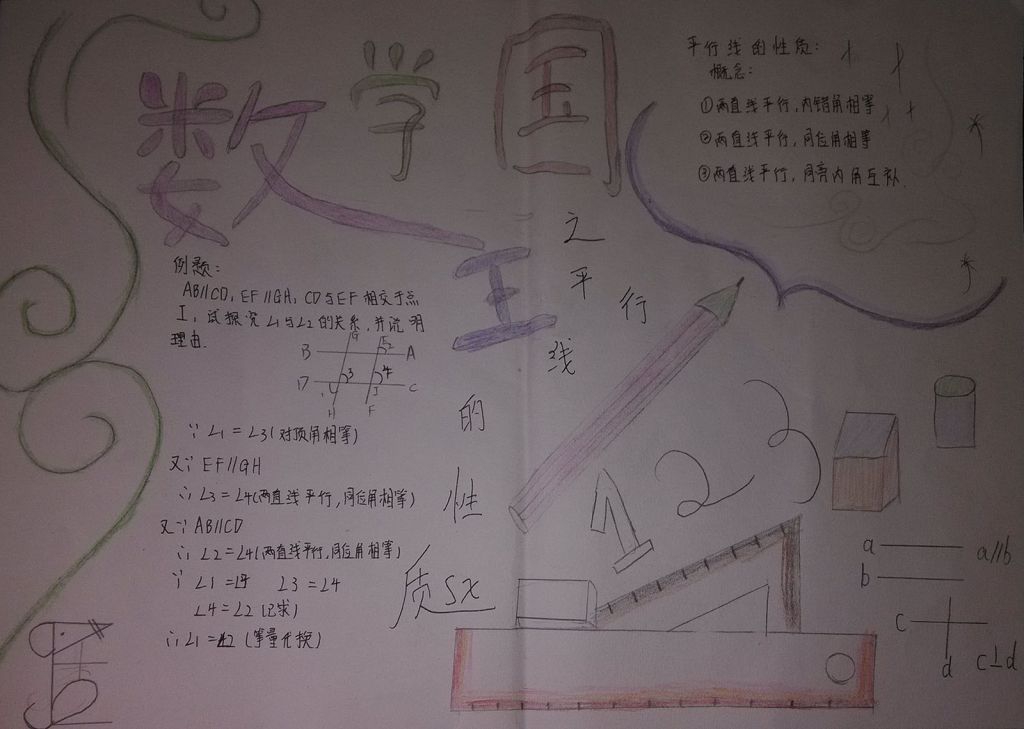 数学国王
之平行线的性质
平行线的性质:
概念:
①两直线平行,内错角相等
②两直线平行,同位角相等
③两直线平行,同旁内角互补.
例题:
AB//CD, EF//GH, CD与EF相交于点
I, 试探究∠1与∠2的关系,并说明
理由.
G E
B 2 A
3 4
D 1 I C
H F
∵ ∠1=∠3(对顶角相等)
又∵ EF//GH
∴ ∠3=∠4(两直线平行,同位角相等)
又∵ AB//CD
∴ ∠2=∠4(两直线平行,同位角相等)
∵ ∠1=∠4 ∠3=∠4
∠4=∠2(已求)
∴ ∠1=∠2(等量代换)
SX
1 2 3
a a//b
b
c
d c⊥d